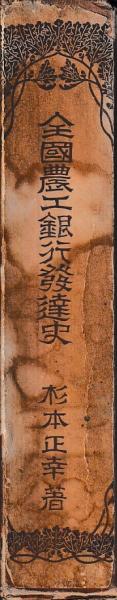 全國農工銀行發達史
杉本正幸著